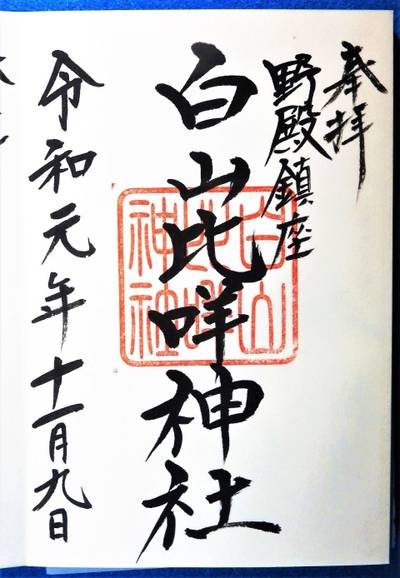 奉拝
野殿鎮座
白山比咩神社
白山
比咩
神社
令和元年十一月九日